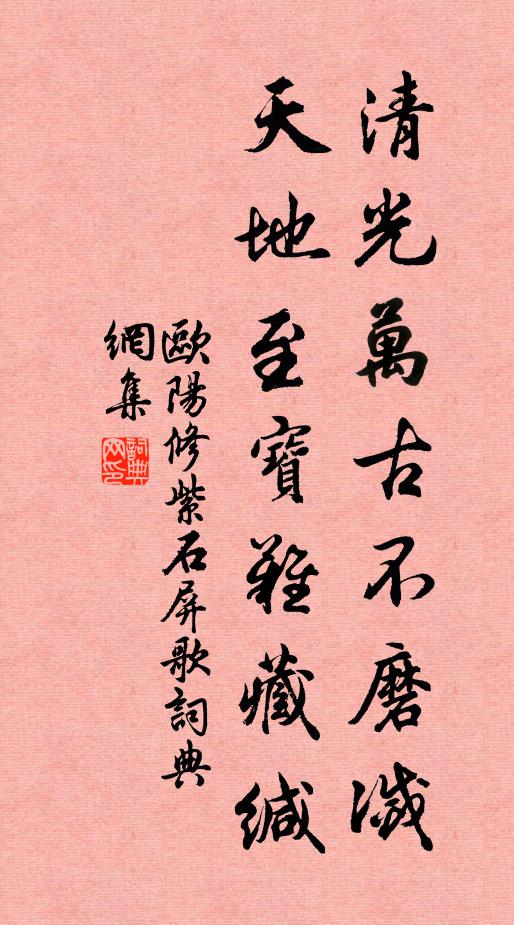 清光萬古不磨滅
天地至寶難藏緘
歐陽修紫石屏歌詞典
網集
詞典
网印